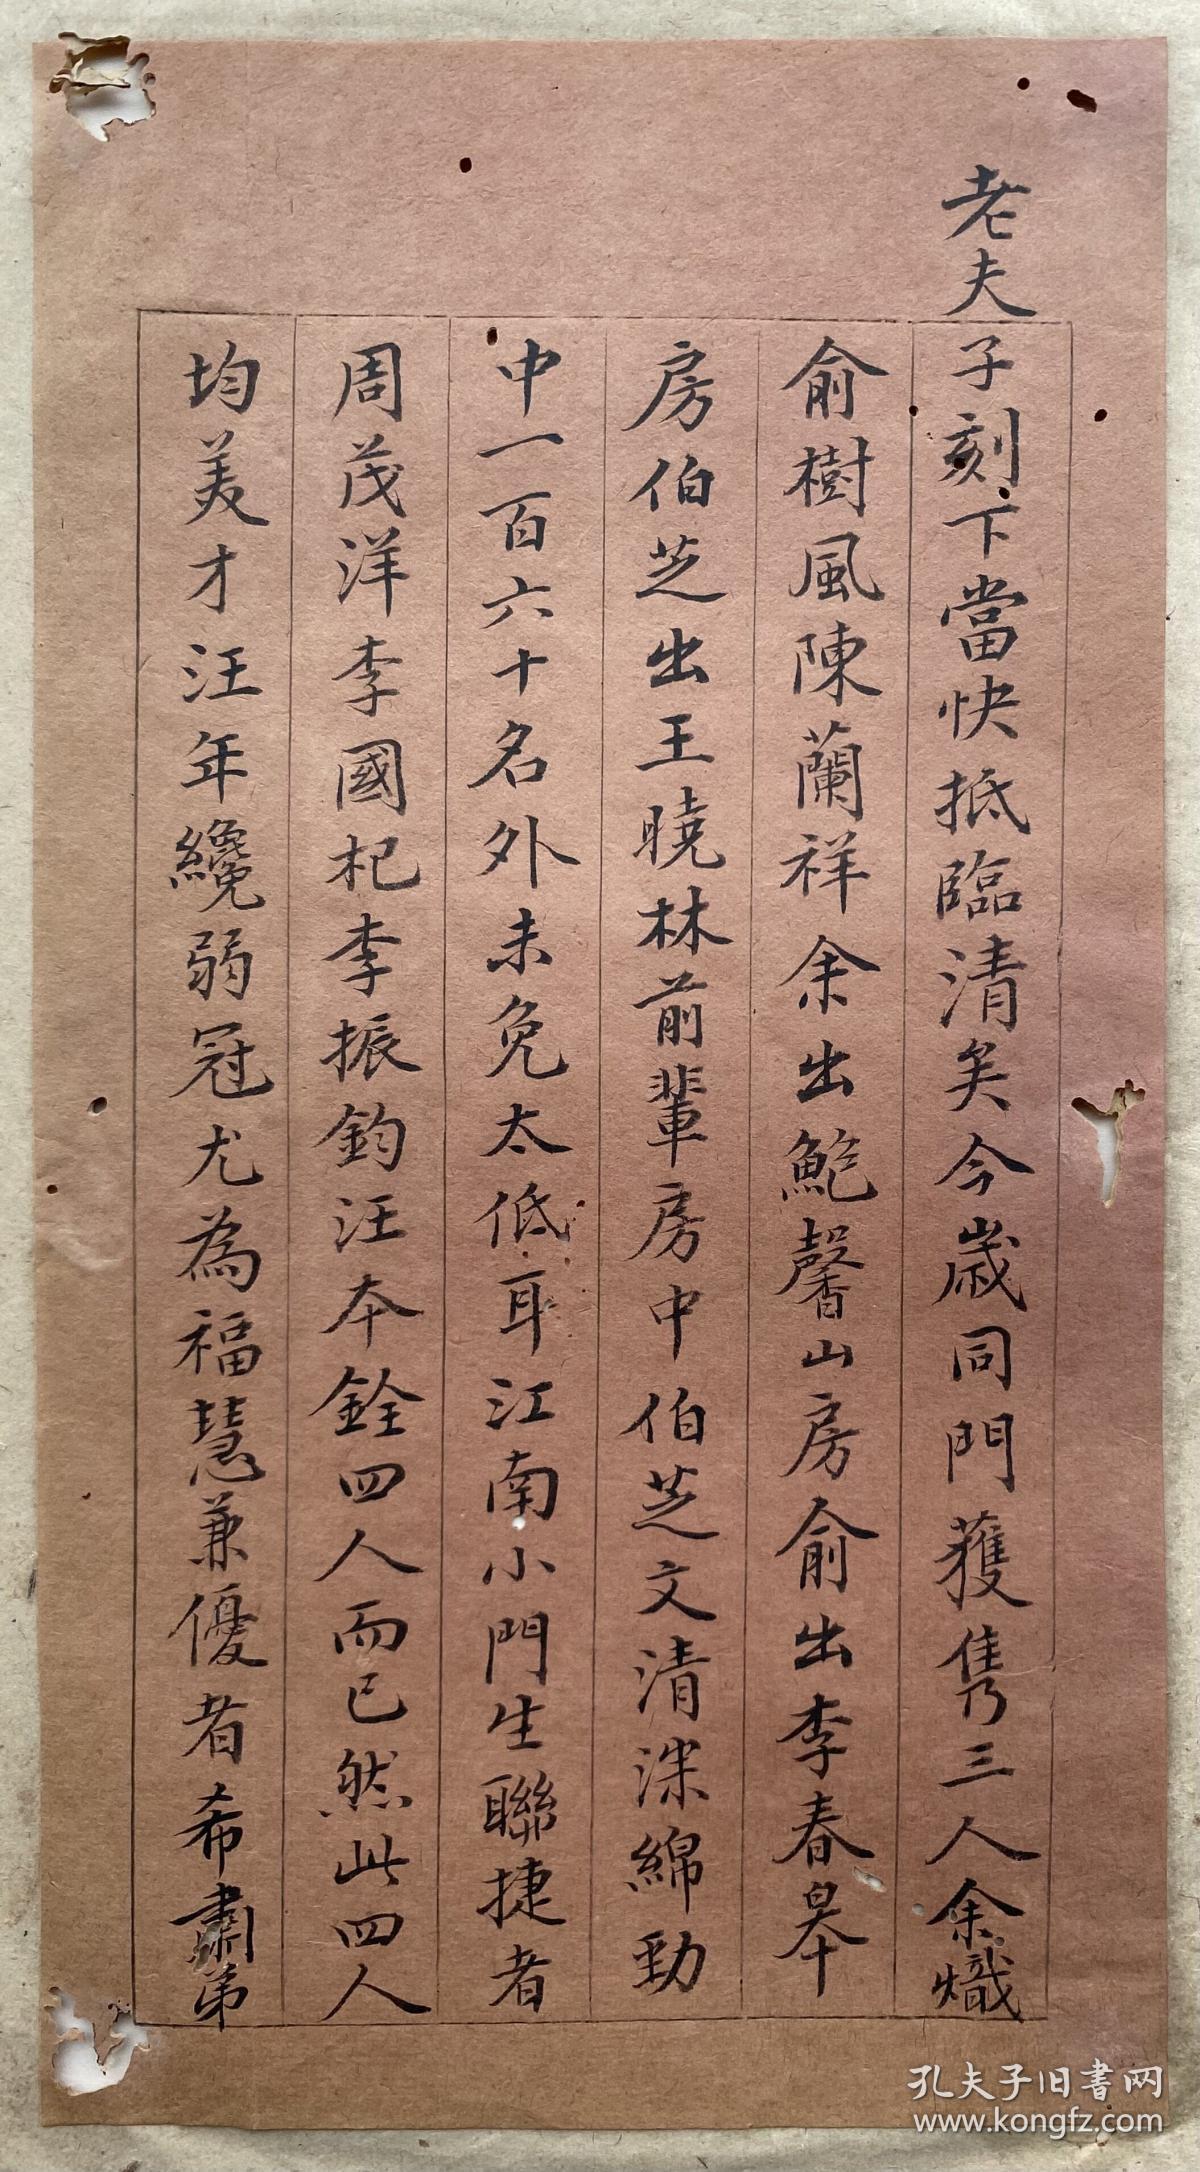 老夫子刻下當快抵臨清矣今歲同門獲雋三人余熾
俞樹風陳蘭祥余出鮑馨山房俞出李春皋
房伯芝出王曉林前輩房中伯芝文清深綿勁
中一百六十名外未免太低耳江南小門生聯捷者
周茂洋李國杞李振鈞汪本銓四人而已然此四人
均美才汪年纔弱冠尤為福慧兼優者希肅弟
孔夫子旧書网
www.kongfz.com